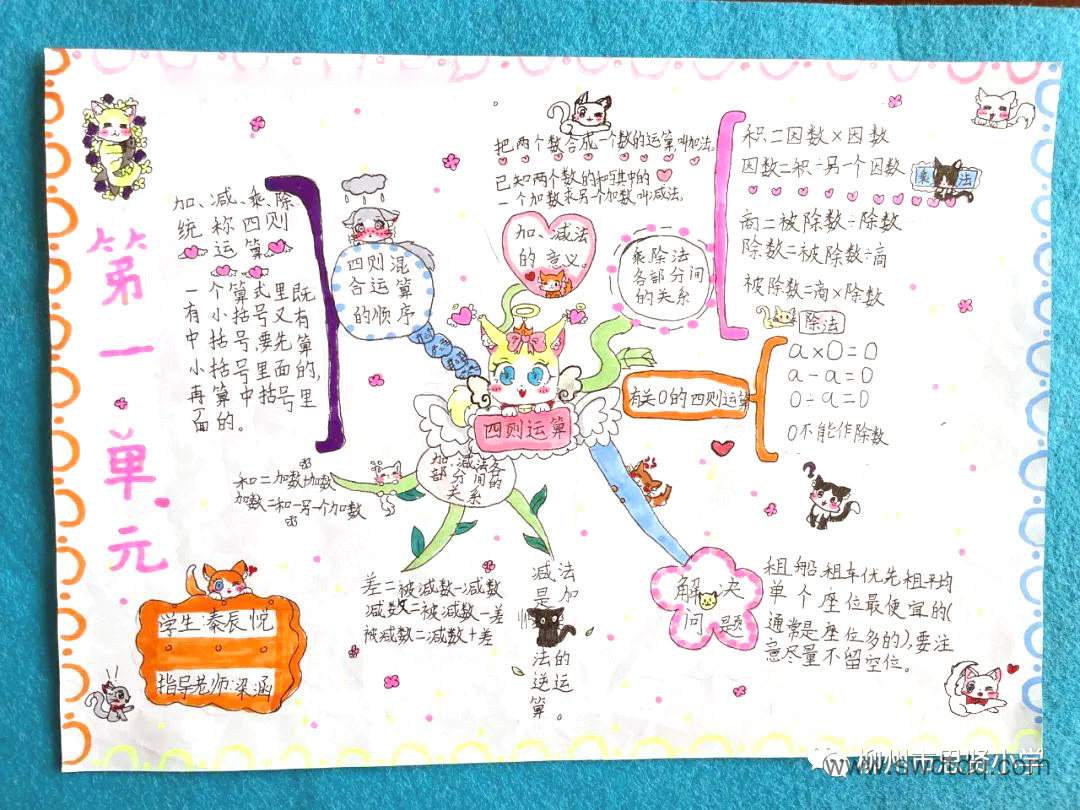 第一单元
加、减、乘、除
统称四则
运算
一个算式里既
有小括号又有
中括号,要先算
小括号里面的,
再算中括号里
面的。
四则混
合运算
的顺序
把两个数合成一个数的运算,叫加法。
已知两个数的和与其中的
一个加数,求另一个加数,叫减法。
加、减法
的意义。
乘除法
各部分间
的关系
积=因数×因数
因数=积÷另一个因数
乘法
商=被除数÷除数
除数=被除数÷商
被除数=商×除数
除法
有关0的四则运算
a×0=0
a-a=0
0÷a=0
0不能作除数
四则运算
加、减法各
部分间的
关系
和=加数+加数
加数=和-另一个加数
差=被减数-减数
减数=被减数-差
被减数=减数+差
减法
是加
法的
逆运
算。
解决
问题
租船、租车优先租平均
单个座位最便宜的(
通常是座位多的),要注
意尽量不留空位。
学生:秦辰悦
指导老师:梁涵
柳州市思贤小学
www.swdtdq.com